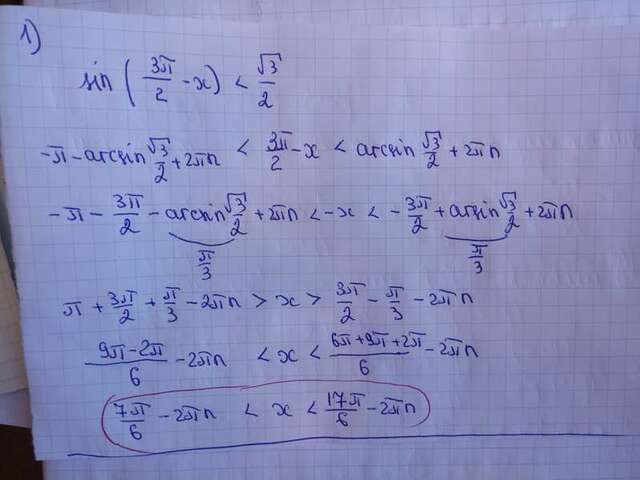 1)
sin ( 3π/2 - x) < √3/2
-π - arcsin √3/2 + 2πn < 3π/2 - x < arcsin √3/2 + 2πn
-π - 3π/2 - arcsin √3/2 + 2πn < -x < -3π/2 + arcsin √3/2 + 2πn
π/3 π/3
π + 3π/2 + π/3 - 2πn > x > 3π/2 - π/3 - 2πn
9π-2π/6 - 2πn < x < 6π+9π+2π/6 - 2πn
7π/6 - 2πn < x < 17π/6 - 2πn